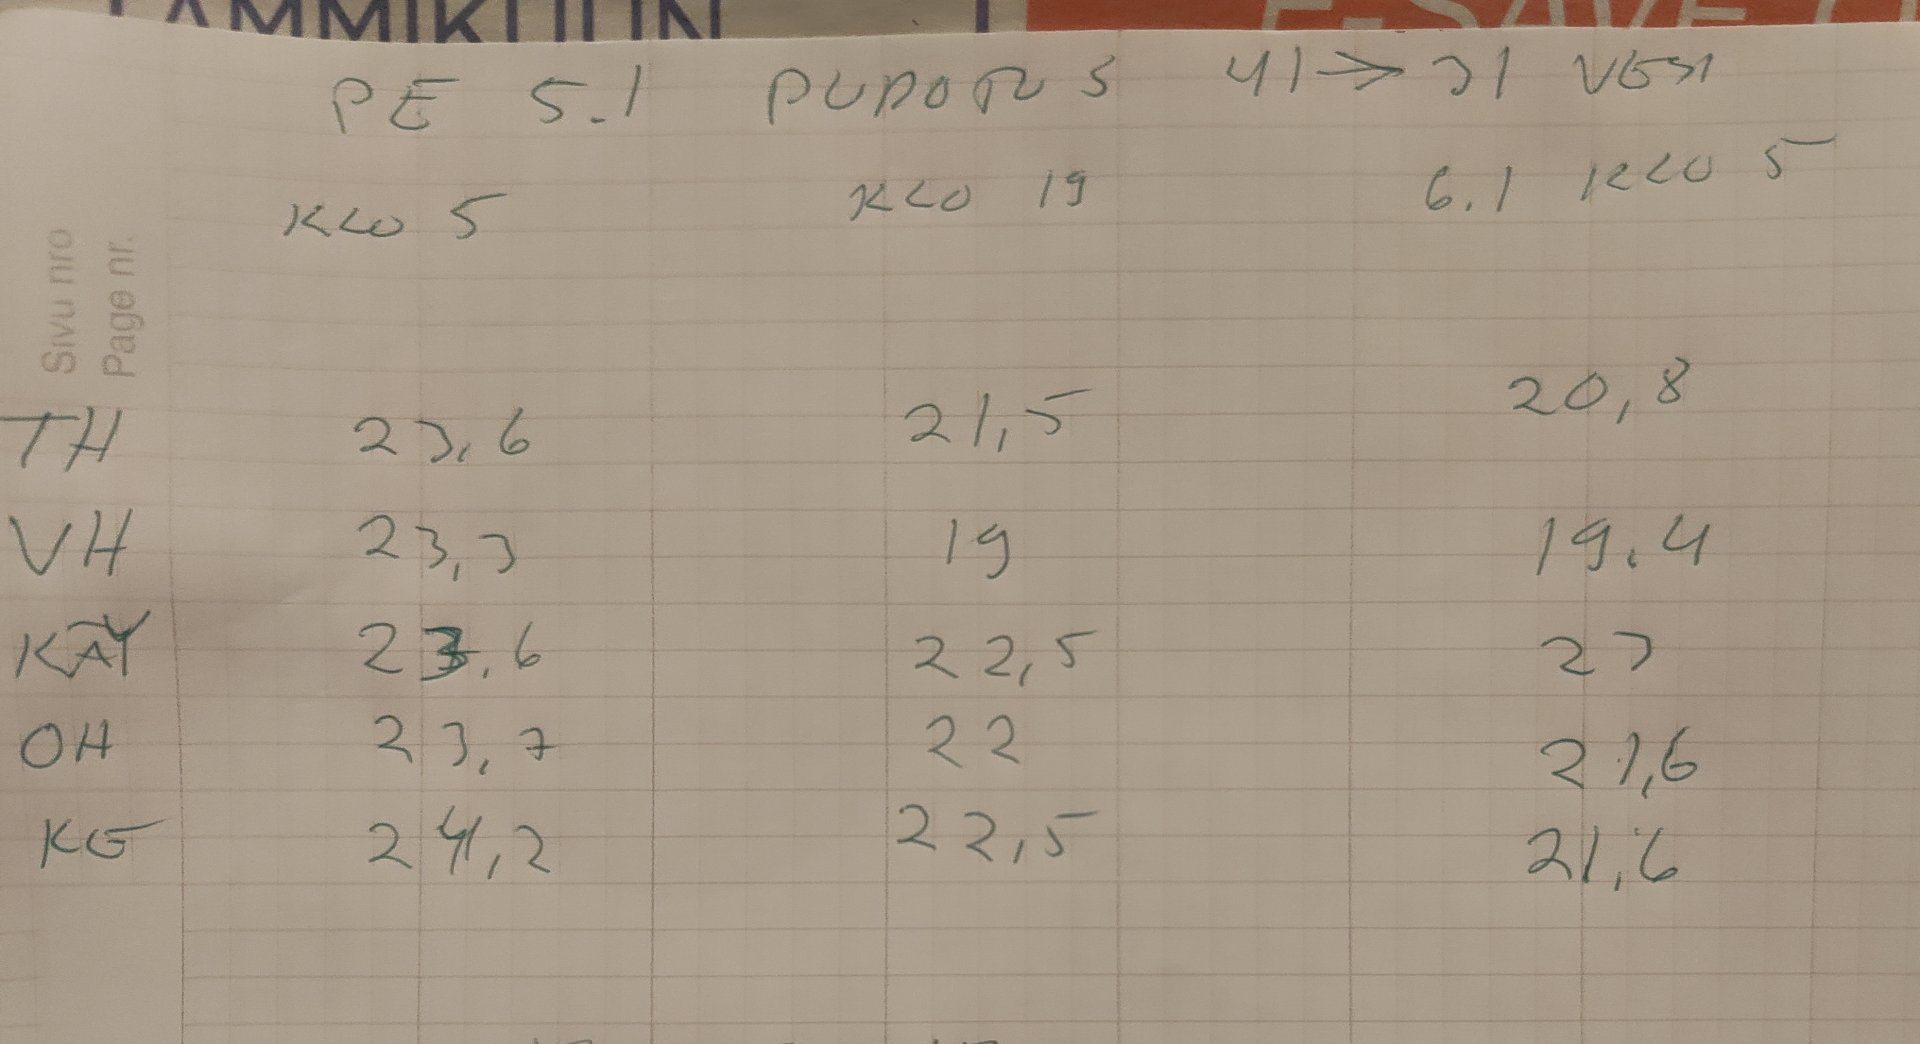 PE 5.1 PUDOTUS 41→31 VESI
KLO 5 KLO 19 6.1 KLO 5
Sivu nro
Page nr.
TH 23,6 21,5 20,8
VH 23,3 19 19.4
KÄY 23,6 22,5 23
OH 23,7 22 21,6
KE 24,2 22,5 21,6